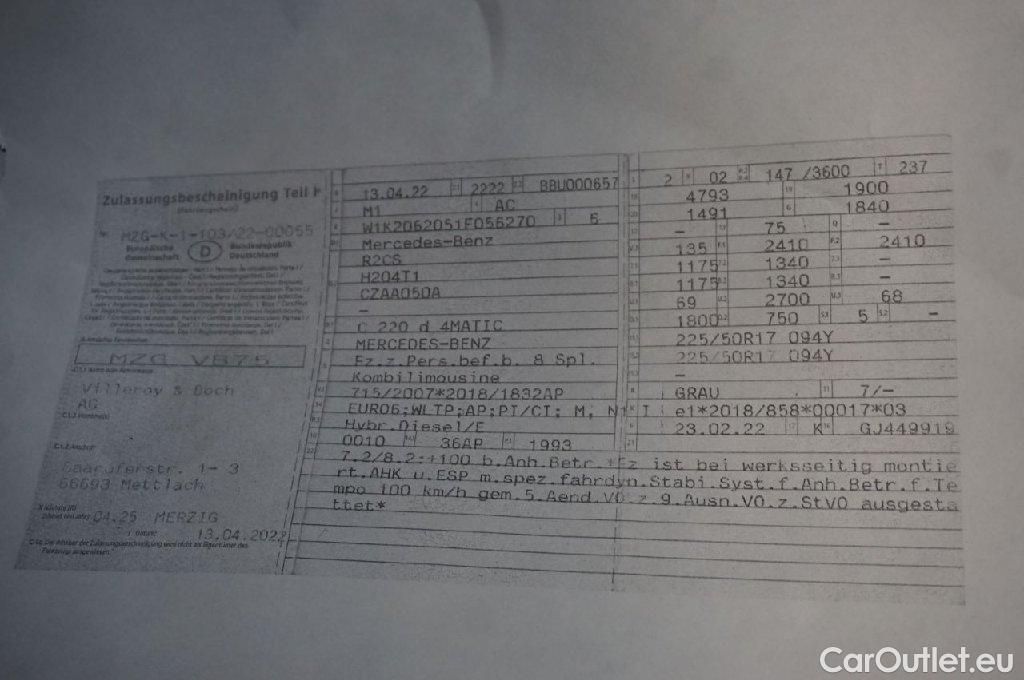 Zulassungsbescheinigung Teil I
(Fahrzeugschein)
Nr. MZG-K-1-103/22-00055
Europäische Gemeinschaft D Bundesrepublik Deutschland
MZG VB75
Villeroy & Boch
AG
Saaruferstr. 1- 3
66693 Mettlach
04.25 MERZIG
13.04.2022
13.04.22 2222 BBU000657
M1 AC
W1K2062051F056270 6
Mercedes-Benz
R2CS
H204T1
CZAA050A
–
C 220 d 4MATIC
MERCEDES-BENZ
Fz.z.Pers.bef.b. 8 Spl.
Kombilimousine
715/2007*2018/1832AP
EURO6;WLTP;AP;PI/CI; M, N1 I
Hybr.Diesel/E
0010 36AP 1993
2 02 147 /3600 237
4793 1900
1491 1840
– 75 –
135 2410 2410
1175 1340 –
1175 1340 –
69 2700 68
1800 750 5 –
225/50R17 094Y
225/50R17 094Y
–
GRAU 7/–
e1*2018/858*00017*03
23.02.22 K GJ449919
7.2/8.2:+100 b.Anh.Betr.*Fz ist bei werksseitig montie
rt.AHK u.ESP m.spez.fahrdyn.Stabi.Syst.f.Anh.Betr.f.Te
mpo 100 km/h gem.5.Aend.VO.z.9.Ausn.VO.z.StVO ausgesta
ttet*
CarOutlet.eu